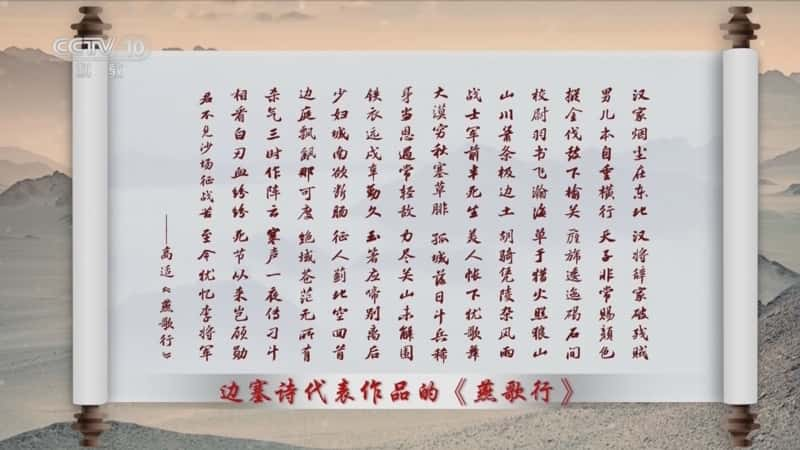 CCTV 10
科教
汉家烟尘在东北 汉将辞家破残贼
男儿本自重横行 天子非常赐颜色
摐金伐鼓下榆关 旌旆逶迤碣石间
校尉羽书飞瀚海 单于猎火照狼山
山川萧条极边土 胡骑凭陵杂风雨
战士军前半死生 美人帐下犹歌舞
大漠穷秋塞草腓 孤城落日斗兵稀
身当恩遇常轻敌 力尽关山未解围
铁衣远戍辛勤久 玉箸应啼别离后
少妇城南欲断肠 征人蓟北空回首
边庭飘飖那可度 绝域苍茫无所有
杀气三时作阵云 寒声一夜传刁斗
相看白刃血纷纷 死节从来岂顾勋
君不见沙场征战苦 至今犹忆李将军
——高适《燕歌行》
边塞诗代表作品的《燕歌行》